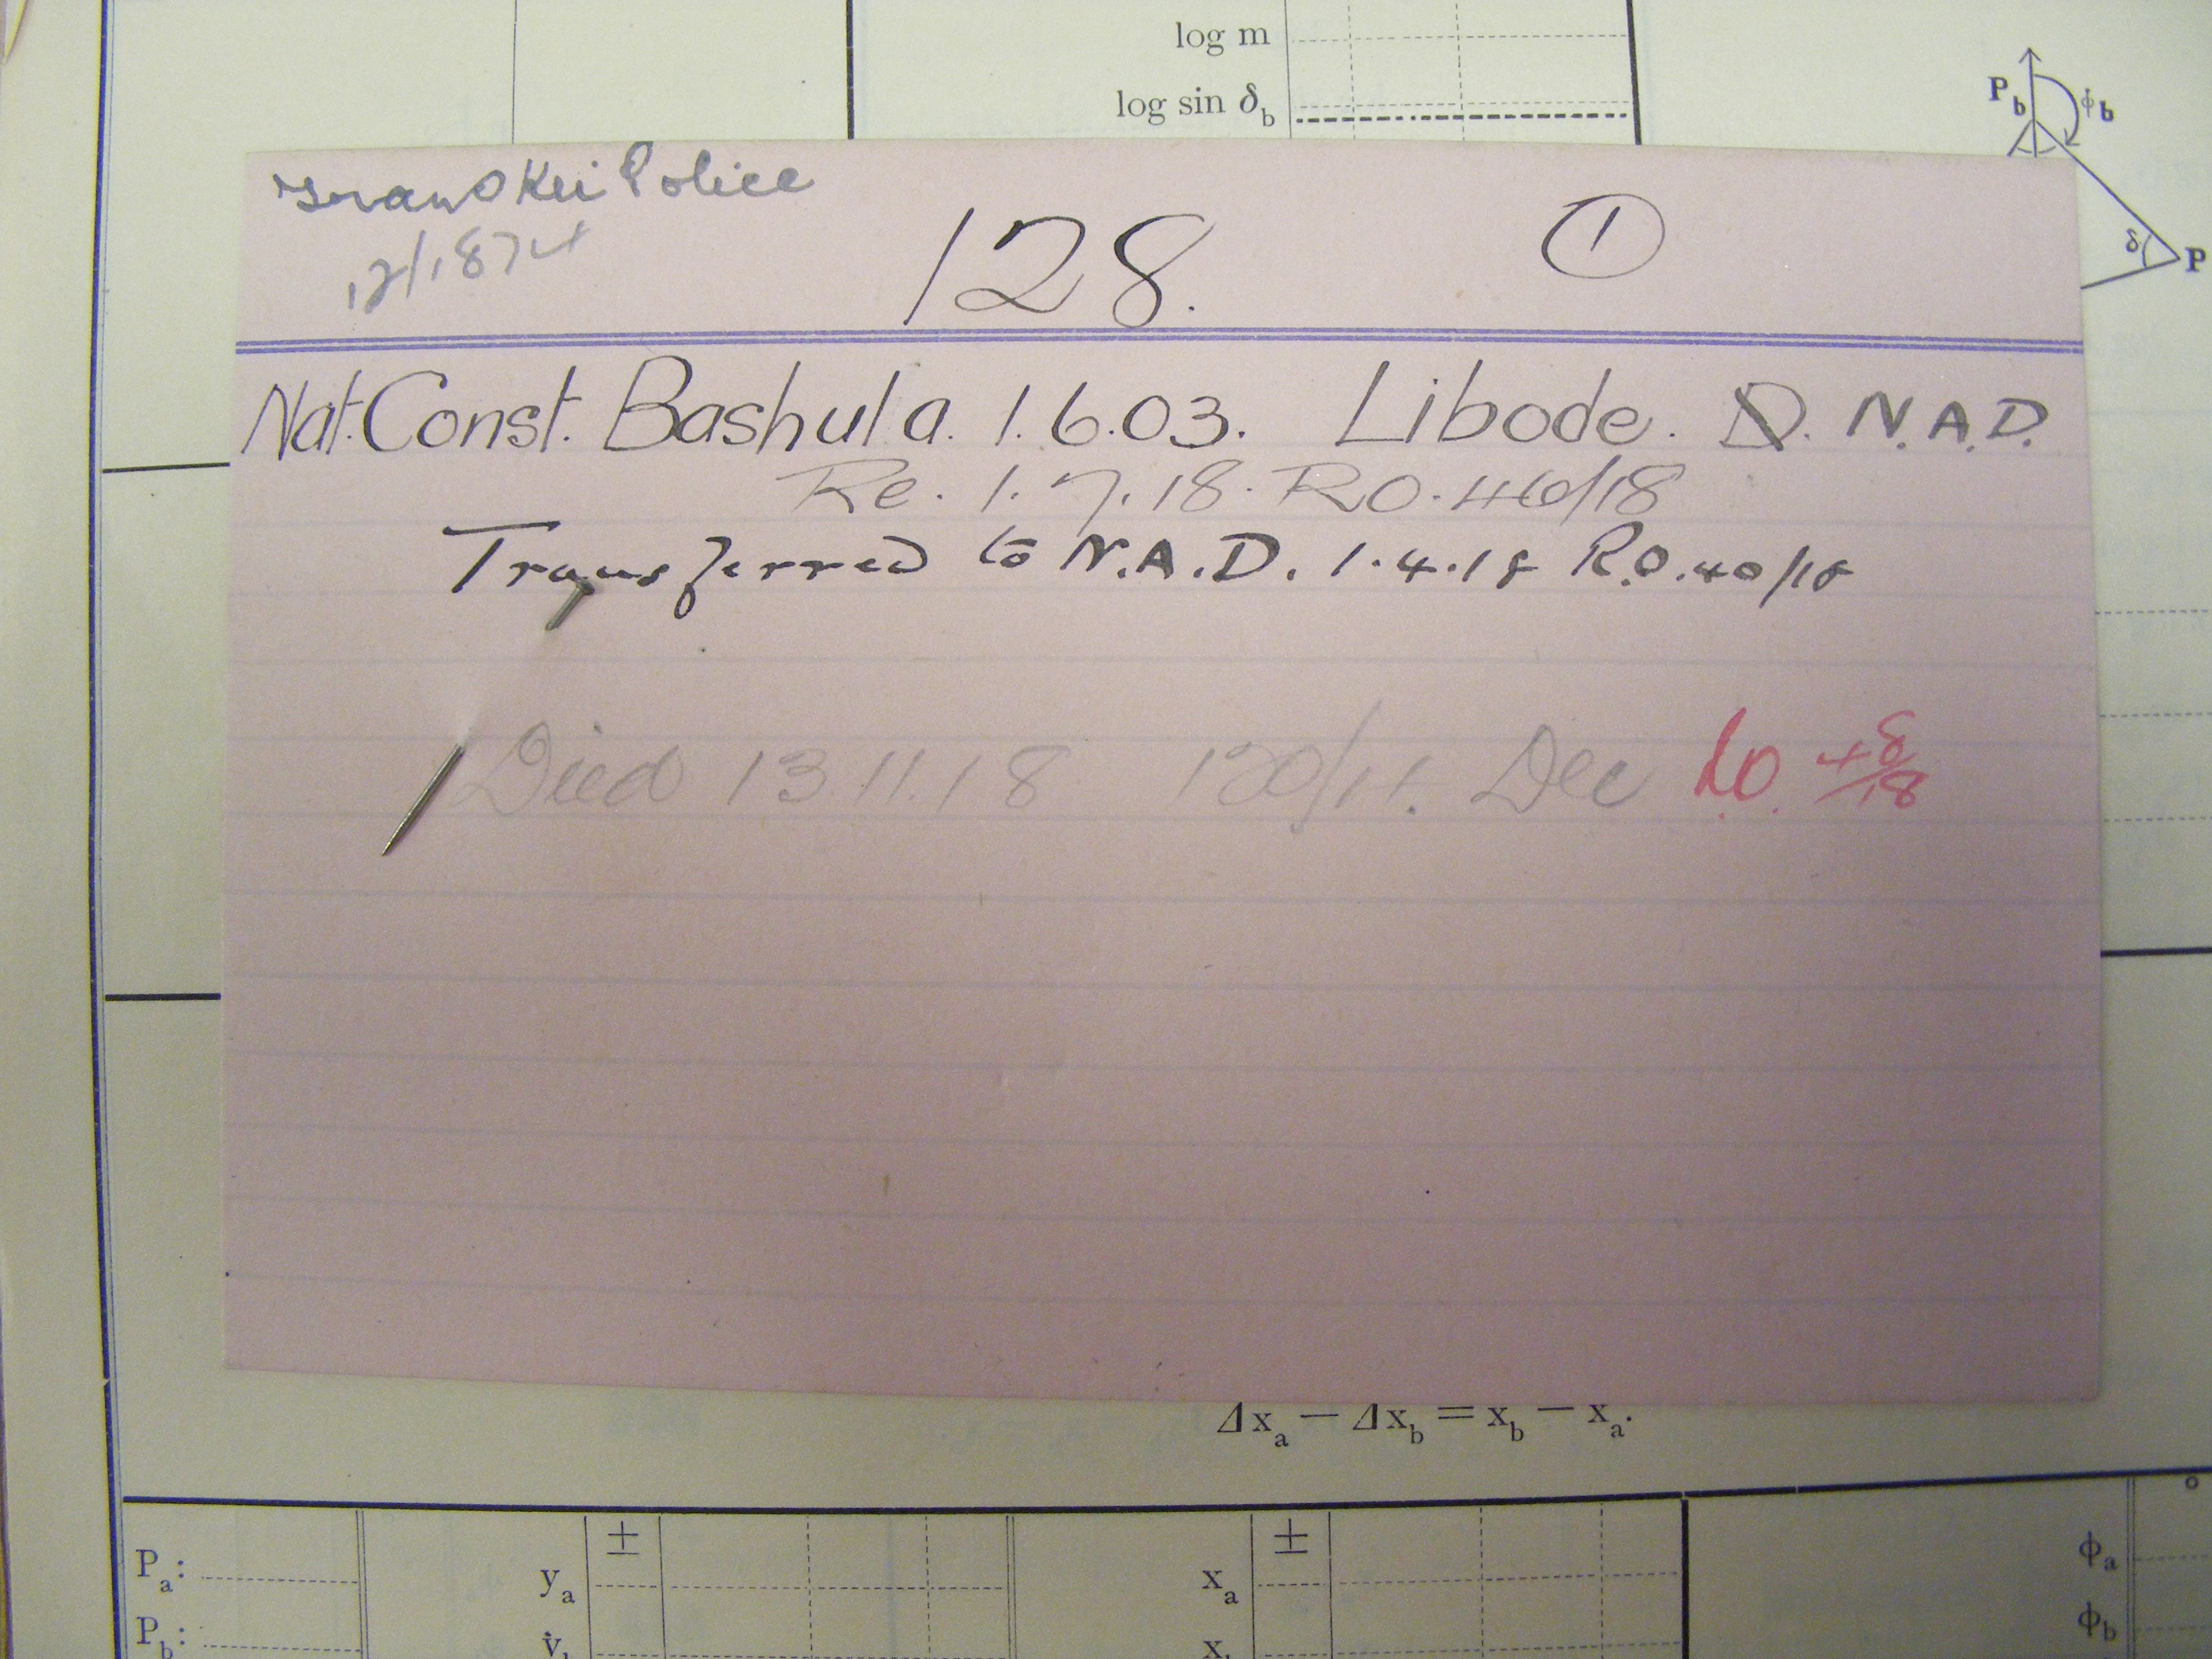 log m
log sin δb
Pb ϕb
δ P
Transkei Police
12/1874
128. 1
Nat. Const. Bashula. 1.6.03. Libode. D. N.A.D.
Re. 1.7.18. RO. 46/18
Transferred to N.A.D. 1.4.18 R.O. 40/18
Died 13.11.18 120/11. Dec RO. 48/18
Δxa — Δxb = xb — xa.
± ±
Pa: ya xa ϕa
Pb: ϕb